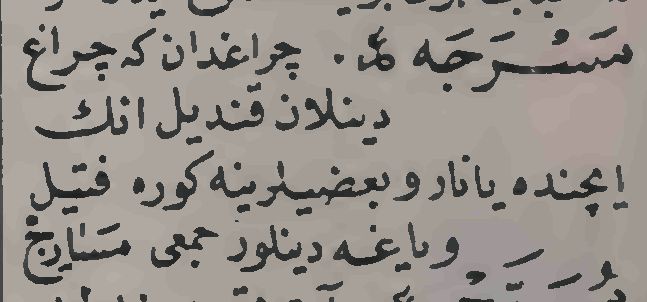 مَسْرَجَه عم. چراغدان که چراغ
دینلان قندیل انك
ایچنده یانار و بعضیلرینه کوره فتیل
و یاغه دینلور جمعی مَسَارِج